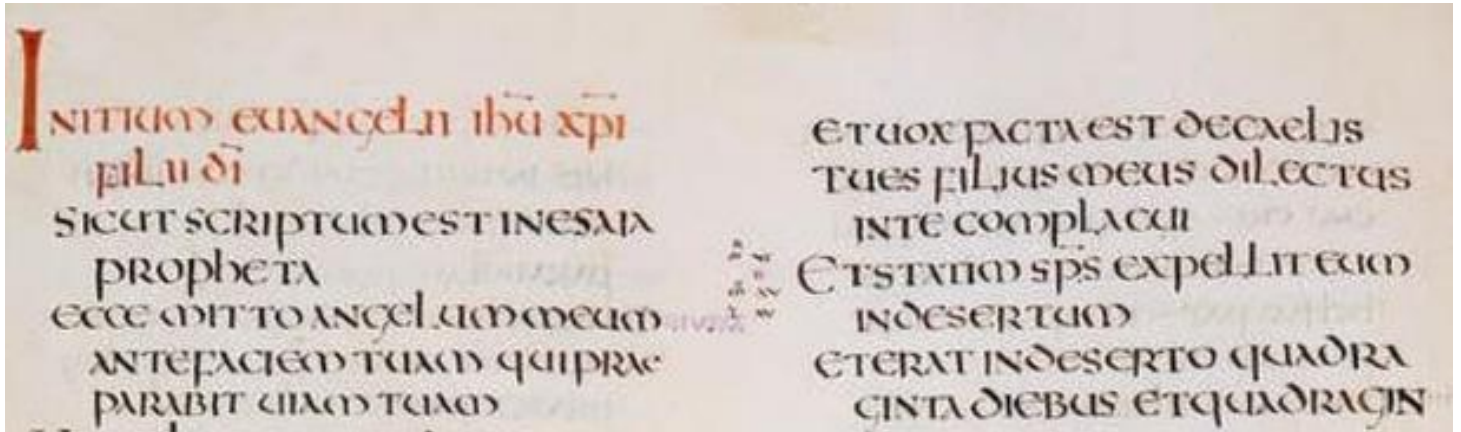 INITIUM EUANGELII IHU XPI
FILII DI
SICUT SCRIPTUM EST IN ESAIA
PROPHETA
ECCE MITTO ANGELUM MEUM
ANTE FACIEM TUAM QUI PRAE
PARABIT UIAM TUAM
ET UOX FACTA EST DE CAELIS
TU ES FILIUS MEUS DILECTUS
IN TE COMPLACUI
ET STATIM SPS EXPELLIT EUM
IN DESERTUM
ET ERAT IN DESERTO QUADRA
GINTA DIEBUS ET QUADRAGIN